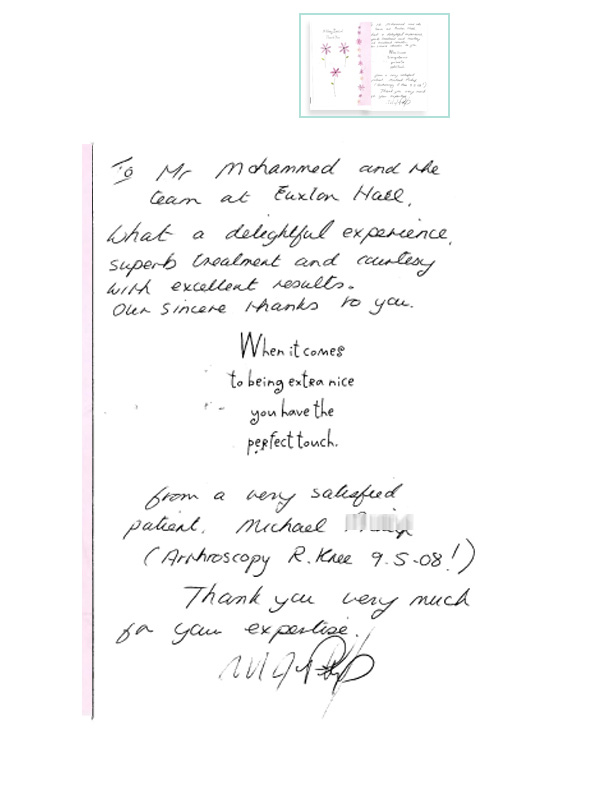 To Mr Mohammed and the
team at Euxton Hall,
What a delightful experience,
superb treatment and courtesy
with excellent results.
Our sincere thanks to you.
When it comes
to being extra nice
you have the
perfect touch.
from a very satisfied
patient, Michael
(Arthroscopy R. Knee 9.5.08!)
Thank you very much
for your expertise.